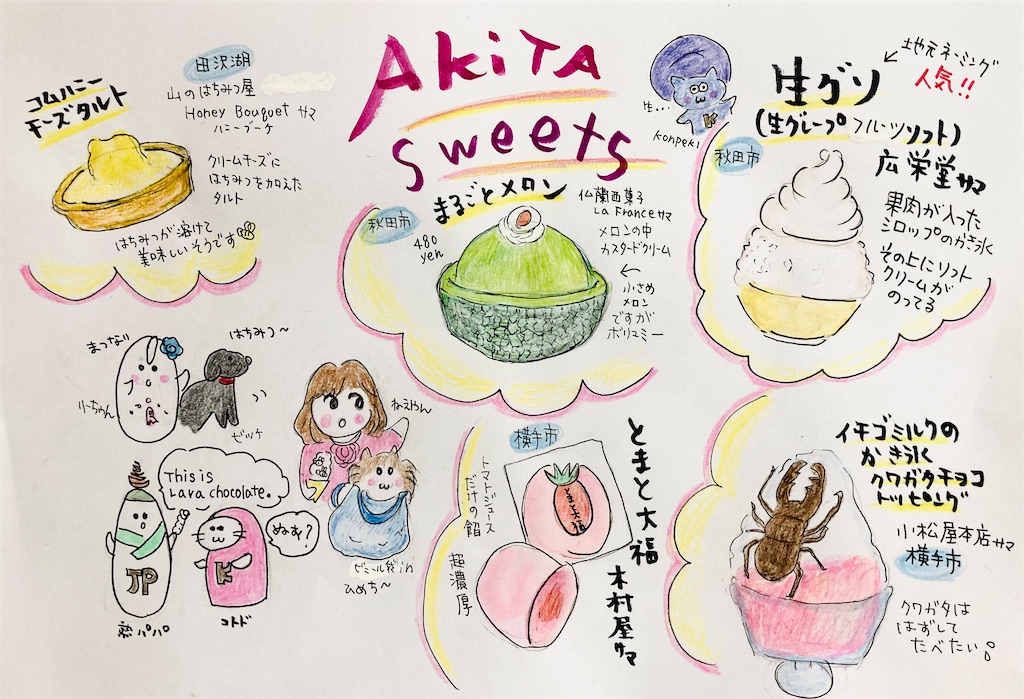 AKiTA
sweets
コムハニー
チーズタルト
田沢湖
山のはちみつ屋
Honey Bouquet サマ
ハニーブーケ
クリームチーズに
はちみつを加えた
タルト
はちみつが溶けて
美味しいそうです
まるごとメロン
秋田市
480
yen
仏蘭西菓子
La France サマ
メロンの中
カスタードクリーム
←
小さめ
メロン
ですが
ボリュミー
生...
konpeki
地元ネーミング
人気!!
生グソ
(生グレープフルーツソフト)
秋田市
広栄堂サマ
果肉が入った
シロップのかき氷
その上にソフト
クリームが
のってる
まつない
はちみつ〜
小ちゃん
ゼッケ
This is
Lava chocolate.
ぬぉ?
JP
K
熱パパ
コトド
ねえやん
ビニール袋in
ひめち〜
横手市
とまと大福
木村屋サマ
とまと大福
トマトジュース
だけの餡
超濃厚
イチゴミルクの
かき氷
クワガタチョコ
トッピング
小松屋本店サマ
横手市
クワガタは
はずして
たべたい♪